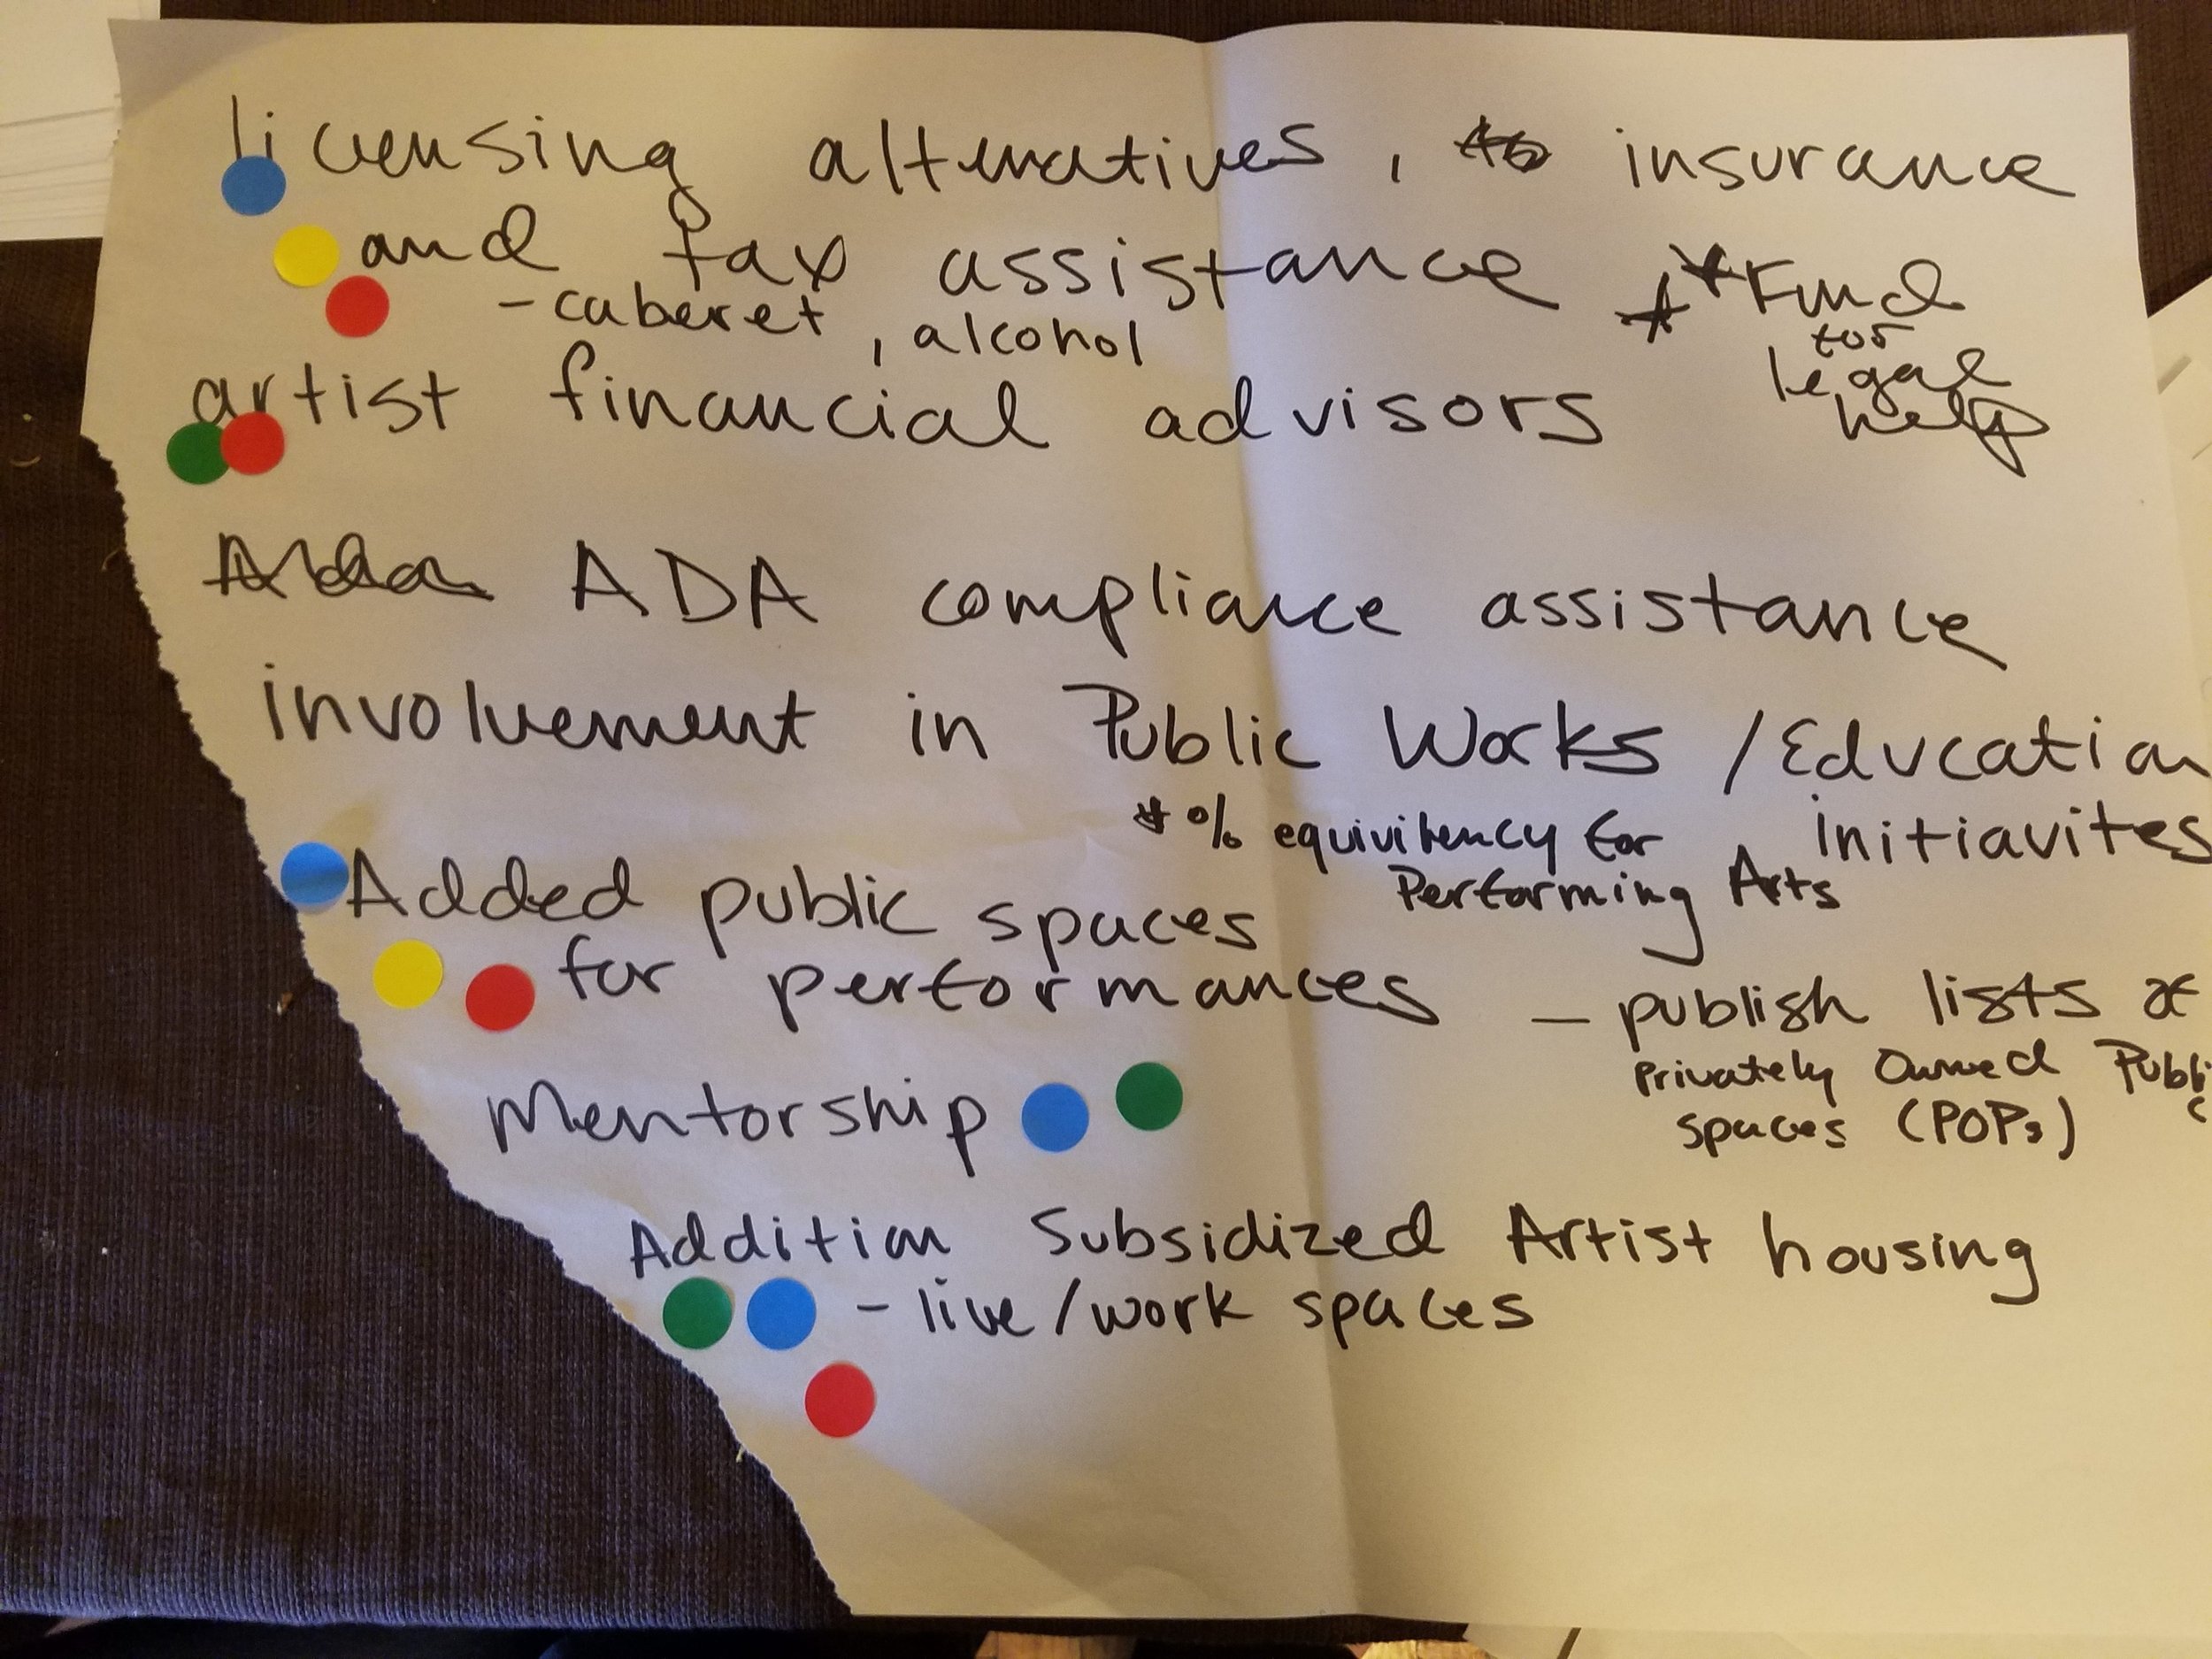 licensing alternatives, insurance
and tax assistance
- caberet, alcohol
**Fund
for
legal
help
artist financial advisors
ADA compliance assistance
involvement in Public Works / Education
initiavites
* % equivilency for
Performing Arts
Added public spaces
for performances
- publish lists of
Privately Owned Public
spaces (POPs)
Mentorship
Addition Subsidized Artist housing
- live/work spaces